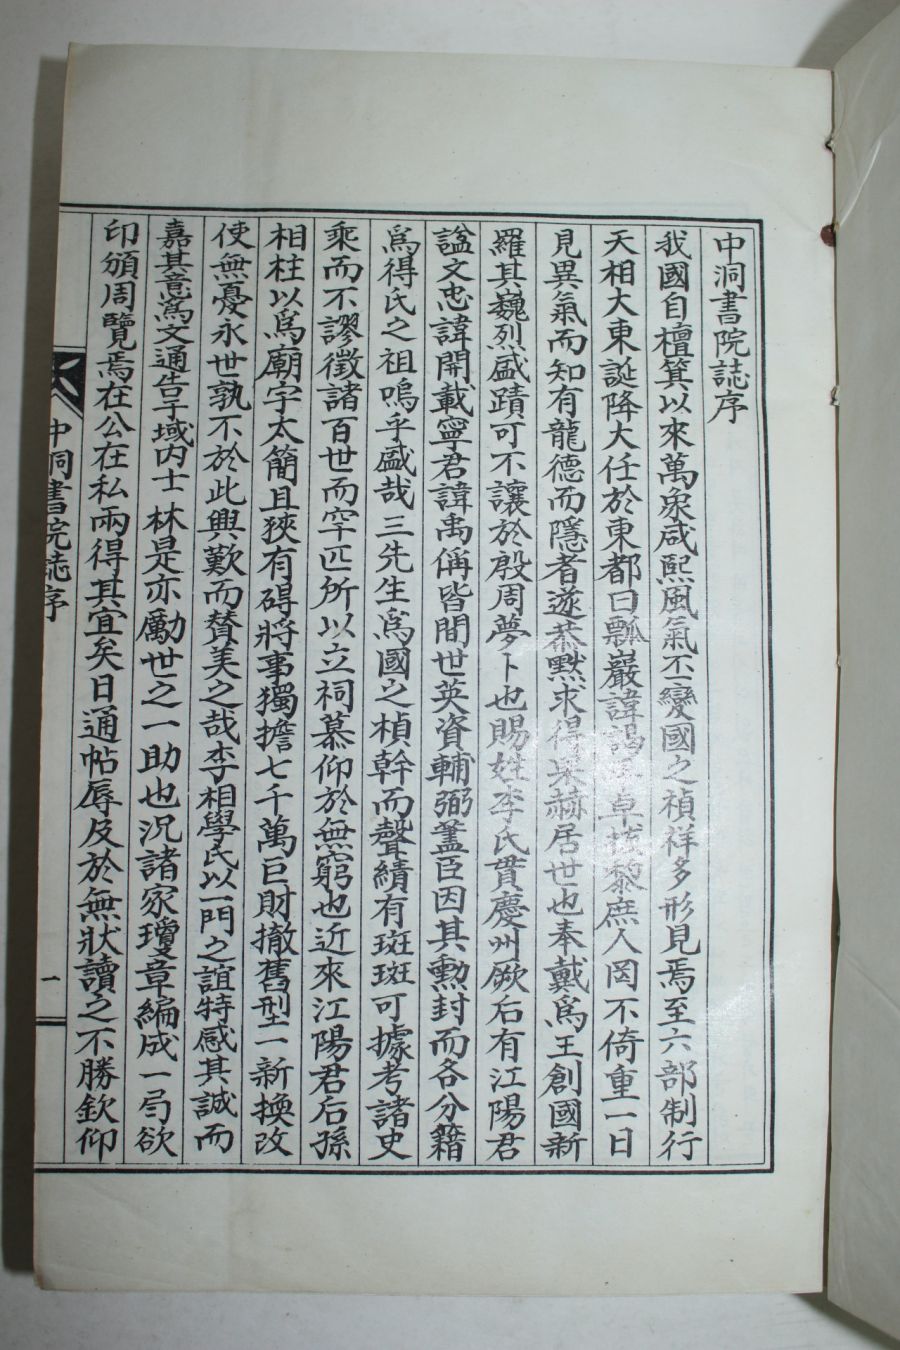 中洞書院誌序
我國自檀箕以來萬泉咸熙風氣丕變國之禎祥多形見焉至六部制行
天相大東誕降大任於東都曰瓢巖諱謁平卓拔黎庶人罔不倚重一日
見異氣而知有龍德而隱者遂恭默求得朴赫居世也奉戴爲王創國新
羅其巍烈盛蹟可不讓於殷周夢卜也賜姓李氏貫慶州厥后有江陽君
諡文忠諱開載寧君諱禹偁皆間世英資輔弼藎臣因其勳封而各分籍
爲得氏之祖嗚乎盛哉三先生爲國之楨幹而聲績有斑斑可據考諸史
乘而不謬徵諸百世而罕匹所以立祠慕仰於無窮也近來江陽君后孫
相柱以爲廟宇太簡且狹有碍將事獨擔七千萬巨財撤舊型一新換改
使無憂永世孰不於此興歎而贊美之哉李相學氏以一門之誼特感其誠而
嘉其意爲文通告于域內士林是亦勵世之一助也況諸家瓊章編成一局欲
印頒周覽焉在公在私兩得其宜矣日通帖辱及於無狀讀之不勝欽仰
中洞書院誌序
一